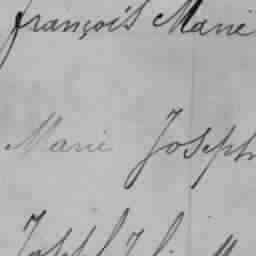 françois Marie
Marie Joseph